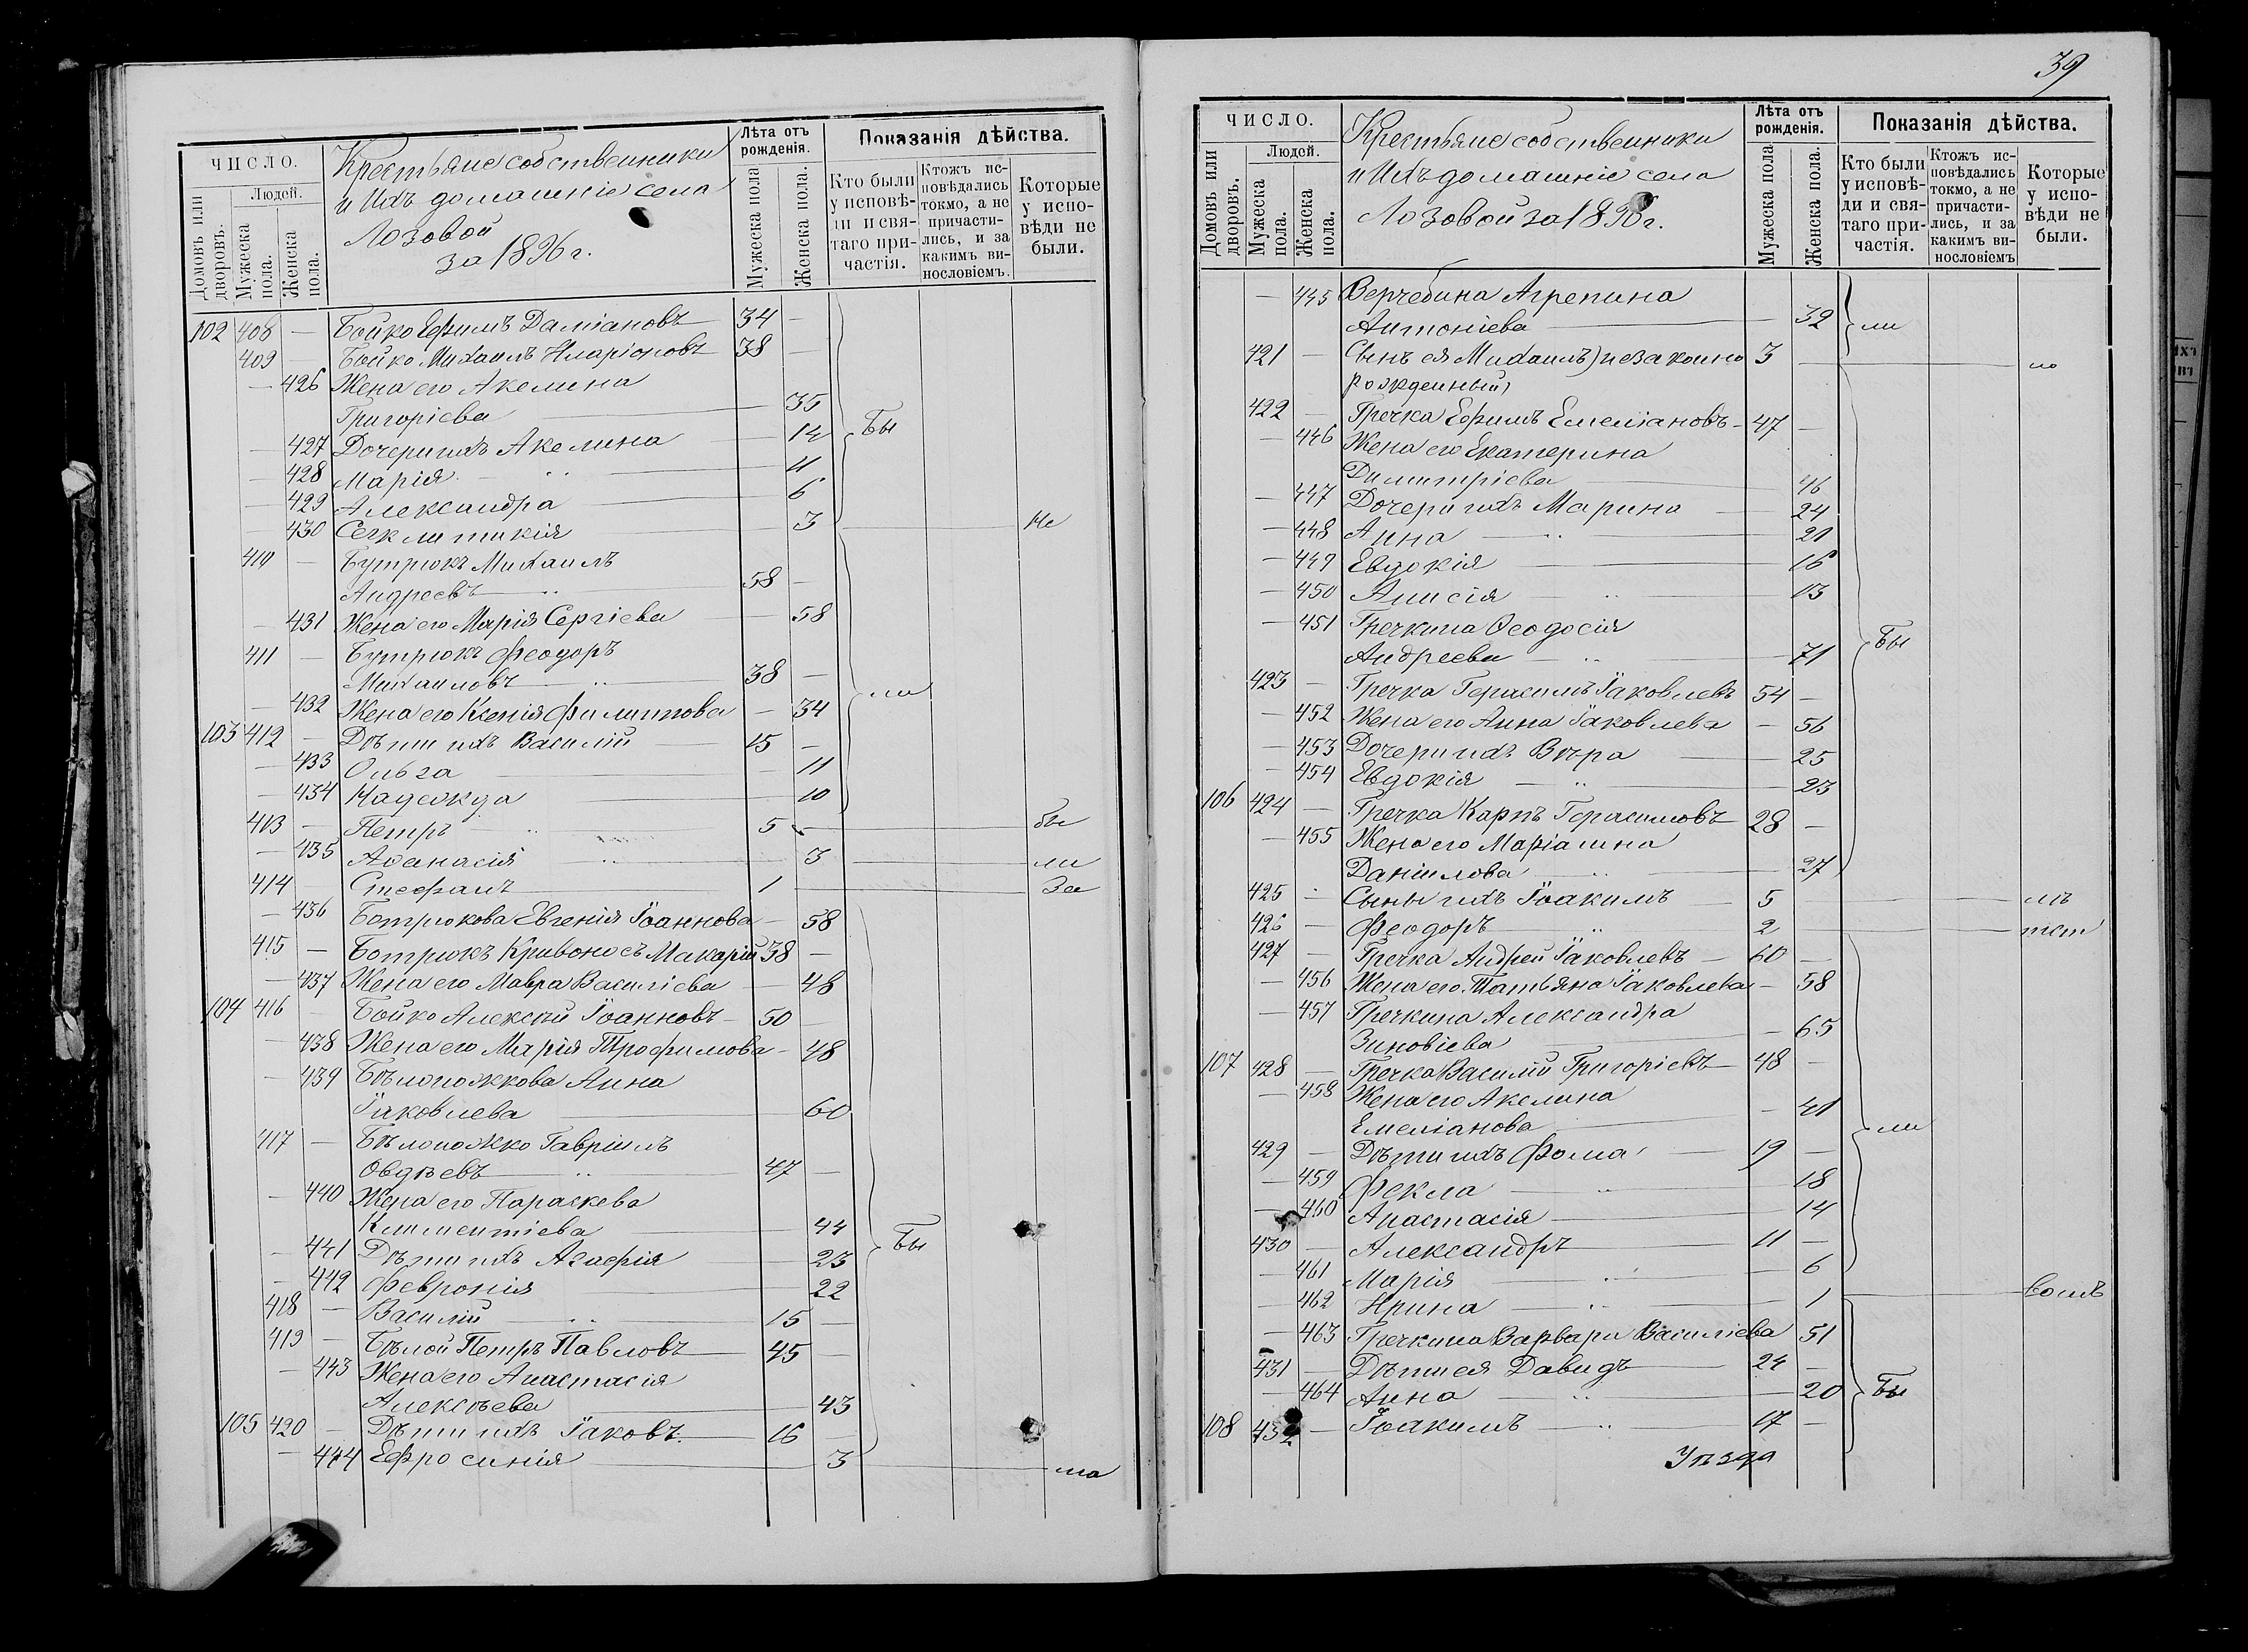 ЧИСЛО.
Домовъ или дворовъ.
Людей.
Мужеска пола.
Женска пола.
Крестьяне собственники
и Ихъ домашніе села
Лозовой
за 1896 г.
Лѣта отъ рожденія.
Мужеска пола
Женска пола.
Показанія дѣйства.
Кто были у исповѣди и святаго причастія.
Ктожъ исповѣдались токмо, а не причастились, и за какимъ винословіемъ.
Которые у исповѣди не были.
102 408 — Бойко Ефимъ Даміановъ 34 —
409 — Бойко Михаилъ Иларіоновъ 38 —
— 426 Жена его Акелина
Григоріева 35
— 427 Дочери ихъ Акелина 14 Бы
— 428 Марія 11
— 429 Александра 6
— 430 Секлитикія 3 Не
410 — Бутрюкъ Михаилъ
Андреевъ 58 —
— 431 Жена его Марія Сергіева — 58
411 — Бутрюкъ Феодоръ
Михаиловъ 38 —
— 432 Жена его Ксенія Филиппова — 34 ли
103 412 — Дѣти ихъ Василій 15 —
— 433 Ольга 11
— 434 Надежда 10
413 — Петръ 5 — бы
— 435 Аѳанасія 3 ли
414 — Стефанъ 1 За
— 436 Ботрюкова Евгенія Іоаннова — 58
415 — Ботрюкъ Кривоносъ Макарій 38 —
— 437 Жена его Мавра Василіева — 48
104 416 — Бойко Алексѣй Іоанновъ 50 —
— 438 Жена его Марія Трофимова — 48
— 439 Бѣлоножкова Анна
Іаковлева 60
417 — Бѣлоножко Гавріилъ
Овдѣевъ 47 —
— 440 Жена его Параскева
Климентіева 44
— 441 Дѣти ихъ Агафія 23 Бы
— 442 Февронія 22
418 — Василій 15 —
419 — Бѣлой Петръ Павловъ 45 —
— 443 Жена его Анастасія
Алексѣева 43
105 420 — Дѣти ихъ Іаковъ 16
— 444 Ефросинія 3 ма
39
ЧИСЛО.
Домовъ или дворовъ.
Людей.
Мужеска пола.
Женска пола.
Крестьяне собственники
и Ихъ домашніе села
Лозовой за 1896 г.
Лѣта отъ рожденія.
Мужеска пола
Женска пола.
Показанія дѣйства.
Кто были у исповѣди и святаго причастія.
Ктожъ исповѣдались токмо, а не причастились, и за какимъ винословіемъ
Которые у исповѣди не были.
— 445 Верчебина Агрепина
Антоніева — 32 ли
421 — Сынъ ея Михаилъ) незаконно 3 ло
рожденный)
422 — Гречка Ефимъ Емеліановъ 47 —
— 446 Жена его Екатерина
Димитріева 46
— 447 Дочери ихъ Марина 24
— 448 Анна 21
— 449 Евдокія 16
— 450 Анисія 13
— 451 Гречкина Ѳеодосія
Андреева 71 Бы
423 — Гречка Герасимъ Іаковлевъ 54 —
— 452 Жена его Анна Іаковлева — 56
— 453 Дочери ихъ Вѣра 25
— 454 Евдокія 23
106 424 — Гречка Карпъ Герасимовъ 28 —
— 455 Жена его Маріанна
Даніилова 27
425 — Сыны ихъ Іоакимъ 5 лѣ
426 — Феодоръ 2 тст
427 — Гречка Андрей Іаковлевъ 60 —
— 456 Жена его Татьяна Іаковлева — 58
— 457 Гречкина Александра
Зиновіева — 65
107 428 — Гречка Василій Григоріевъ 48 —
— 458 Жена его Акелина
Емеліанова — 41 ли
429 — Дѣти ихъ Фома 19 —
— 459 Фекла 18
— 460 Анастасія 14
430 — Александръ 11 —
— 461 Марія 6
— 462 Ирина 1 вомъ
— 463 Гречкина Варвара Василіева 51
431 — Дѣти ея Давидъ 24 —
— 464 Анна 20 Бы
108 432 — Іоакимъ 17 —
Уѣзда